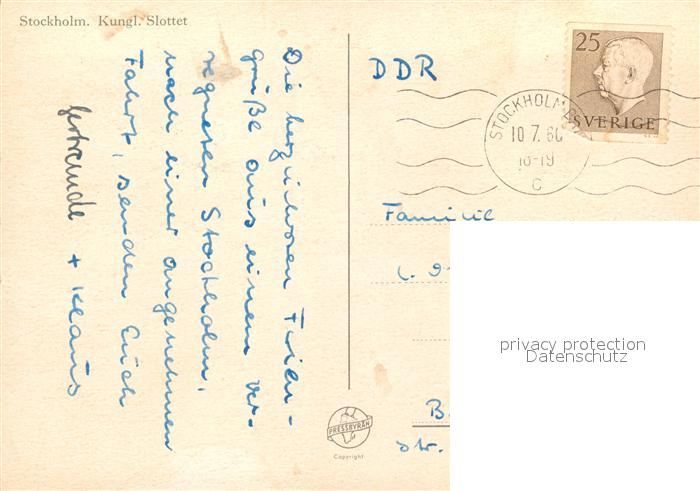 Stockholm. Kungl. Slottet
Die herzlichsten Ferien-
grüße aus einem ver-
regneten Stockholm,
nach einer angenehmen
Fahrt, senden Euch
Gertraude + Klaus
DDR
25
SVERIGE
STOCKHOLM
10.7.60
18-19
C
Familie
B.
Str.
PRESSBYRÅN
Copyright
privacy protection
Datenschutz